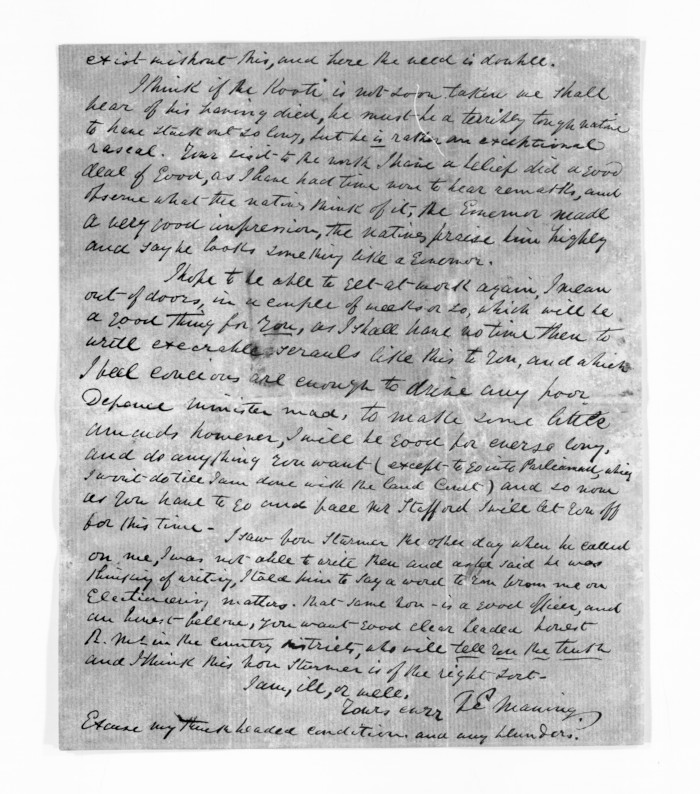 exist without this, and here the need is double.
I think if the Kooti is not soon taken we shall
hear of his having died, he must be a terribly tough native
to have stuck out so long, but he is rather an exceptional
rascal. Your visit to the north I have a belief did a good
deal of good, as I have had time now to hear remarks, and
observe what the natives think of it; the Governor made
a very good impression, the natives praise him highly
and say he looks something like a Governor.
I hope to be able to get at work again, I mean
out of doors, in a couple of weeks or so, which will be
a good thing for you, as I shall have no time then to
write execrable scrauls like this to you, and which
I feel concious are enough to drive any poor
Defence minister mad, to make some little
amends however, I will be good for ever so long,
and do anything you want (except to go into Parliament, which
I wont do till I am done with the land Court) and so now
as you have to go and face Mr Stafford I will let you off
for this time - I saw von Sturmer the other day when he called
on me, I was not able to write then and as he said he was
thinking of writing, I told him to say a word to you from me on
Electioneering matters. that same von - is a good officer, and
an honest fellow, you want good clear headed honest
R. Ms in the country districts, who will tell you the truth
and I think this von Sturmer is of the right sort -
I am, ill, or well,
Yours ever F E Maning.
Excuse my thick headed condition and any blunders.